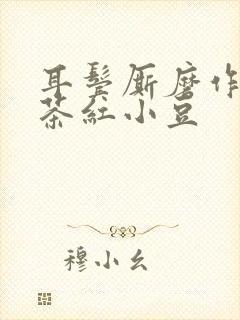 耳鬓厮磨作
茶红小豆
穆小幺